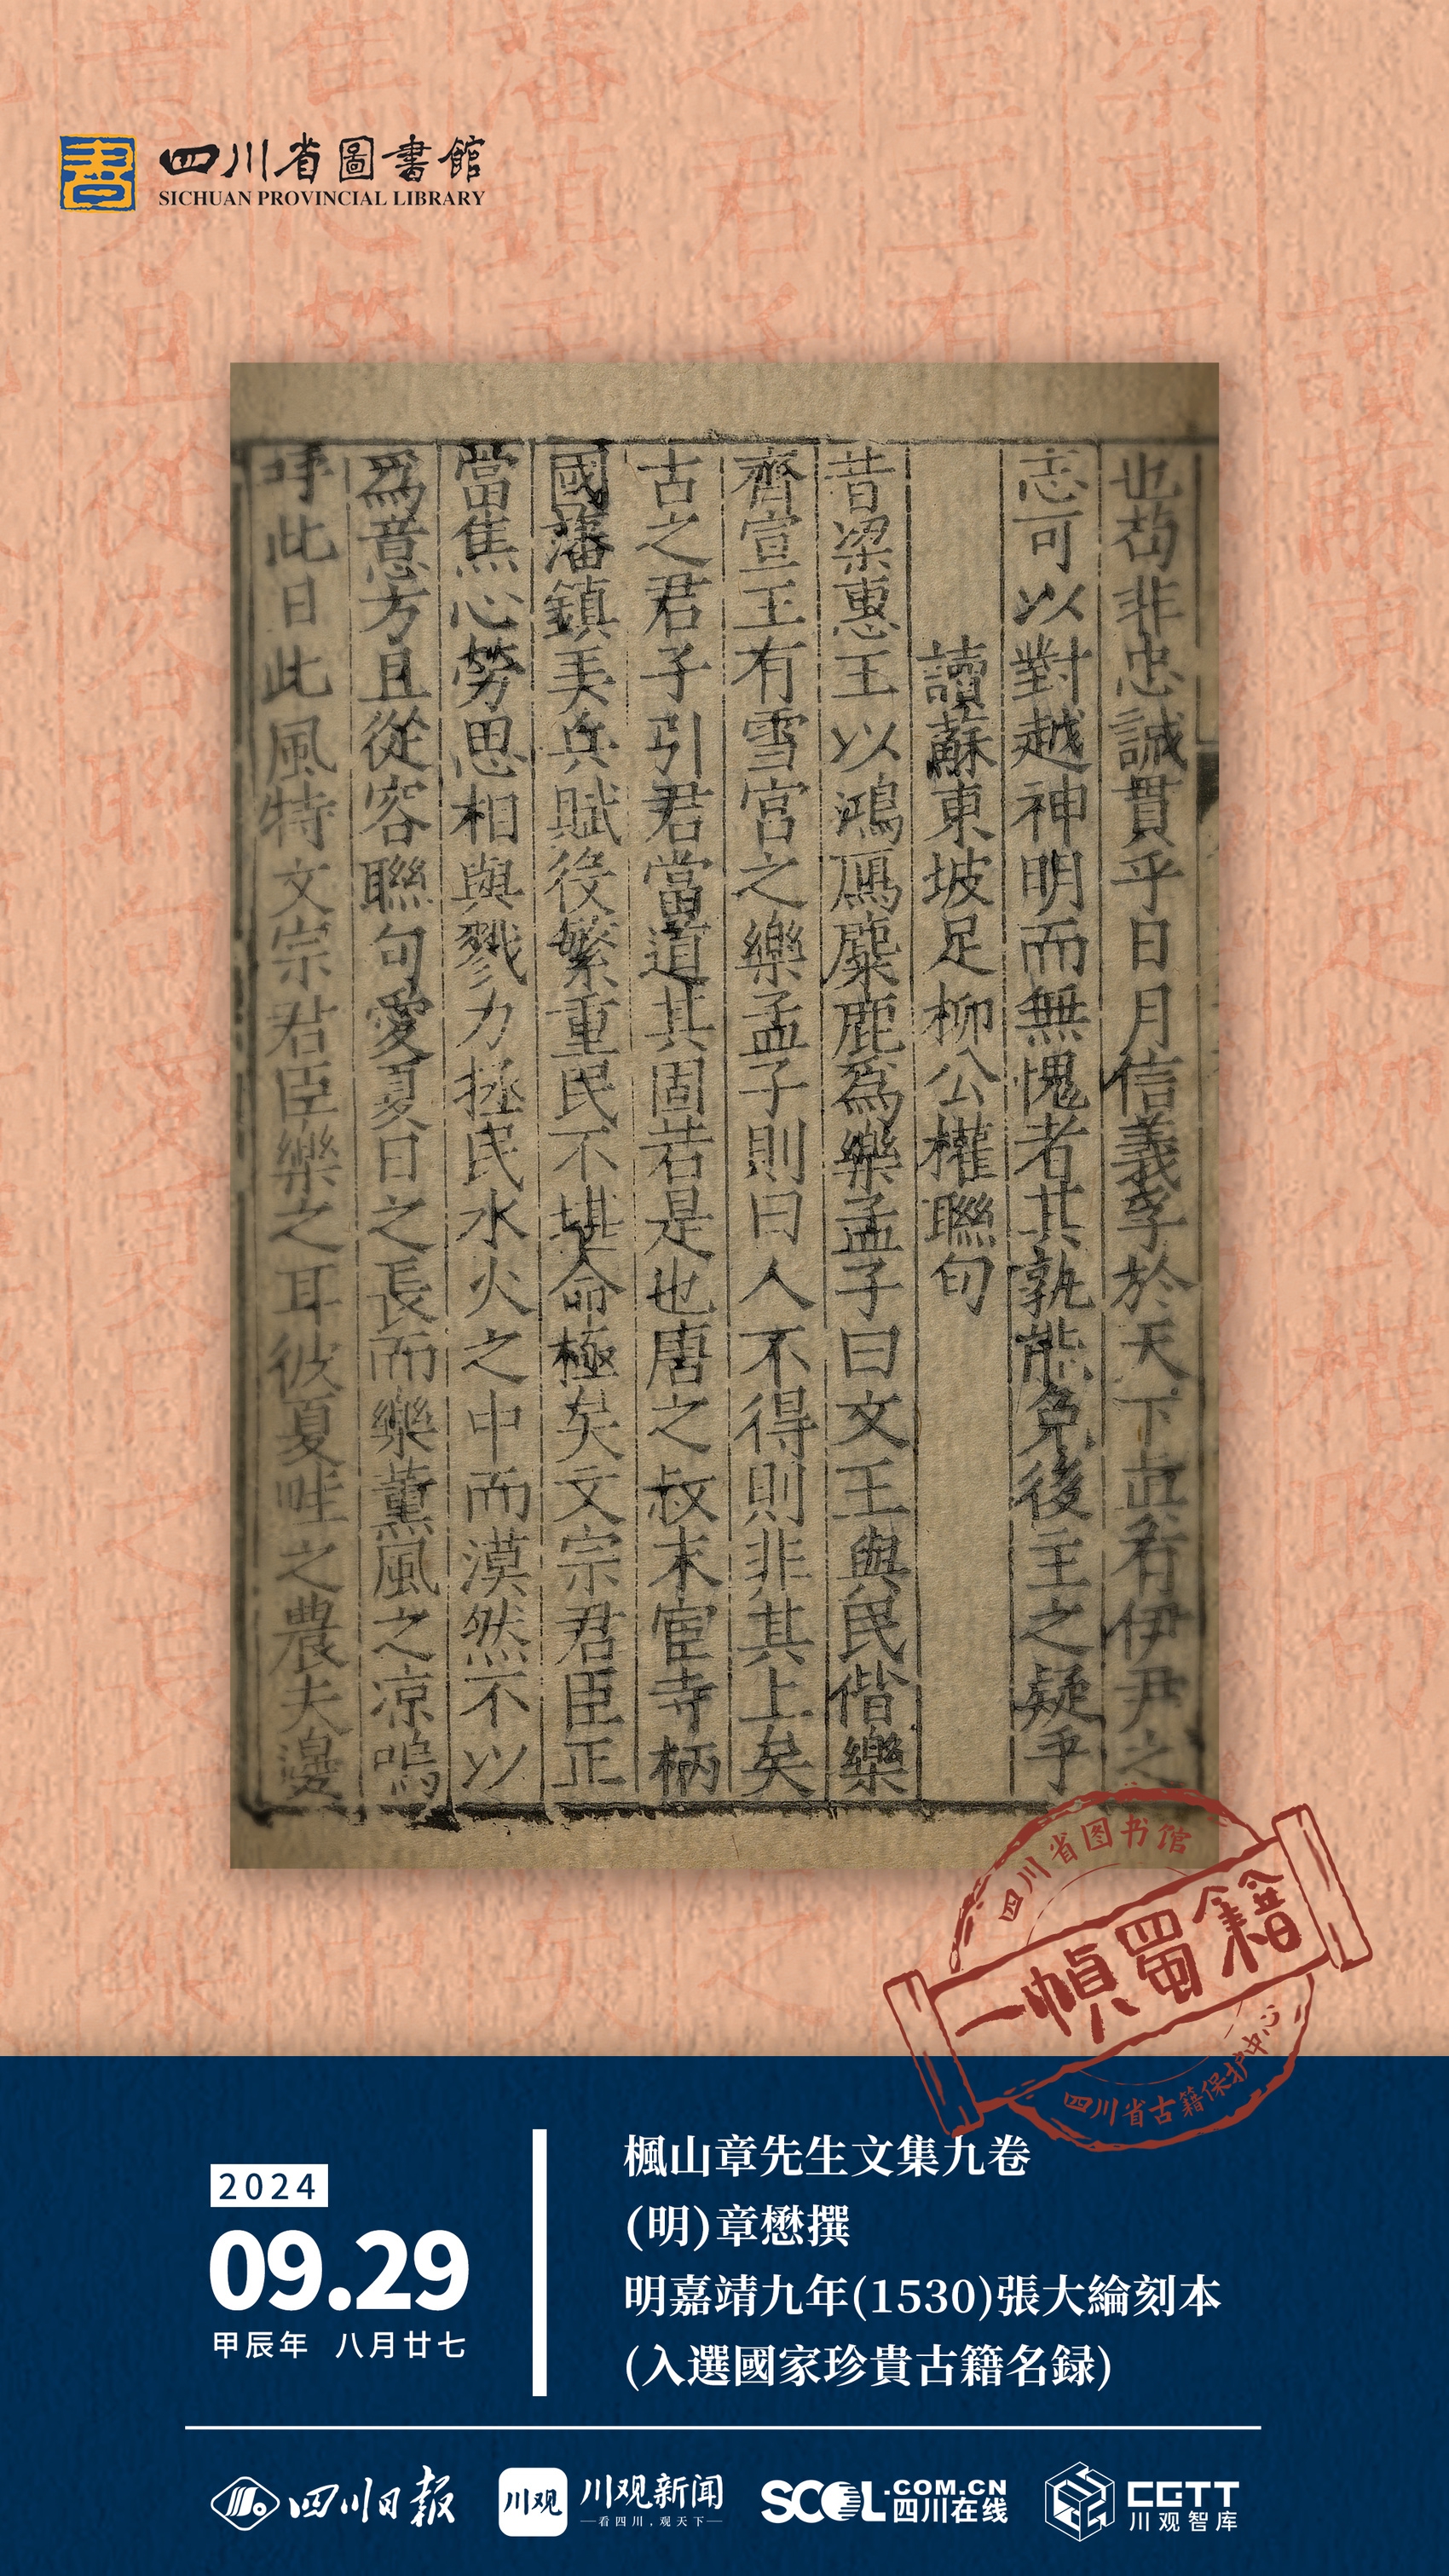 四川省圖書館
SICHUAN PROVINCIAL LIBRARY
也苟非忠誠貫乎日月信義孚於天下真有伊尹之
志可以對越神明而無愧者其孰能免後主之疑乎
讀蘇東坡足柳公權聯句
昔梁惠王以鴻鴈麋鹿爲樂孟子曰文王與民偕樂
齊宣王有雪宮之樂孟子則曰人不得則非其上矣
古之君子引君當道其固若是也唐之叔末宦寺柄
國藩鎮弄兵賦役繁重民不堪命極矣文宗君臣正
當焦心勞思相與戮力拯民水火之中而漠然不以
爲意方且從容聯句愛夏日之長而樂薰風之凉嗚
呼此日此風特文宗君臣樂之耳彼夏畦之農夫邊
四川省图书馆
一幀蜀籍
四川省古籍保护中心
2024
09.29
甲辰年 八月廿七
楓山章先生文集九卷
(明)章懋撰
明嘉靖九年(1530)張大綸刻本
(入選國家珍貴古籍名録)
四川日报
川观
川观新闻
—看四川，观天下—
SCOL.COM.CN
四川在线
CGTT
川观智库